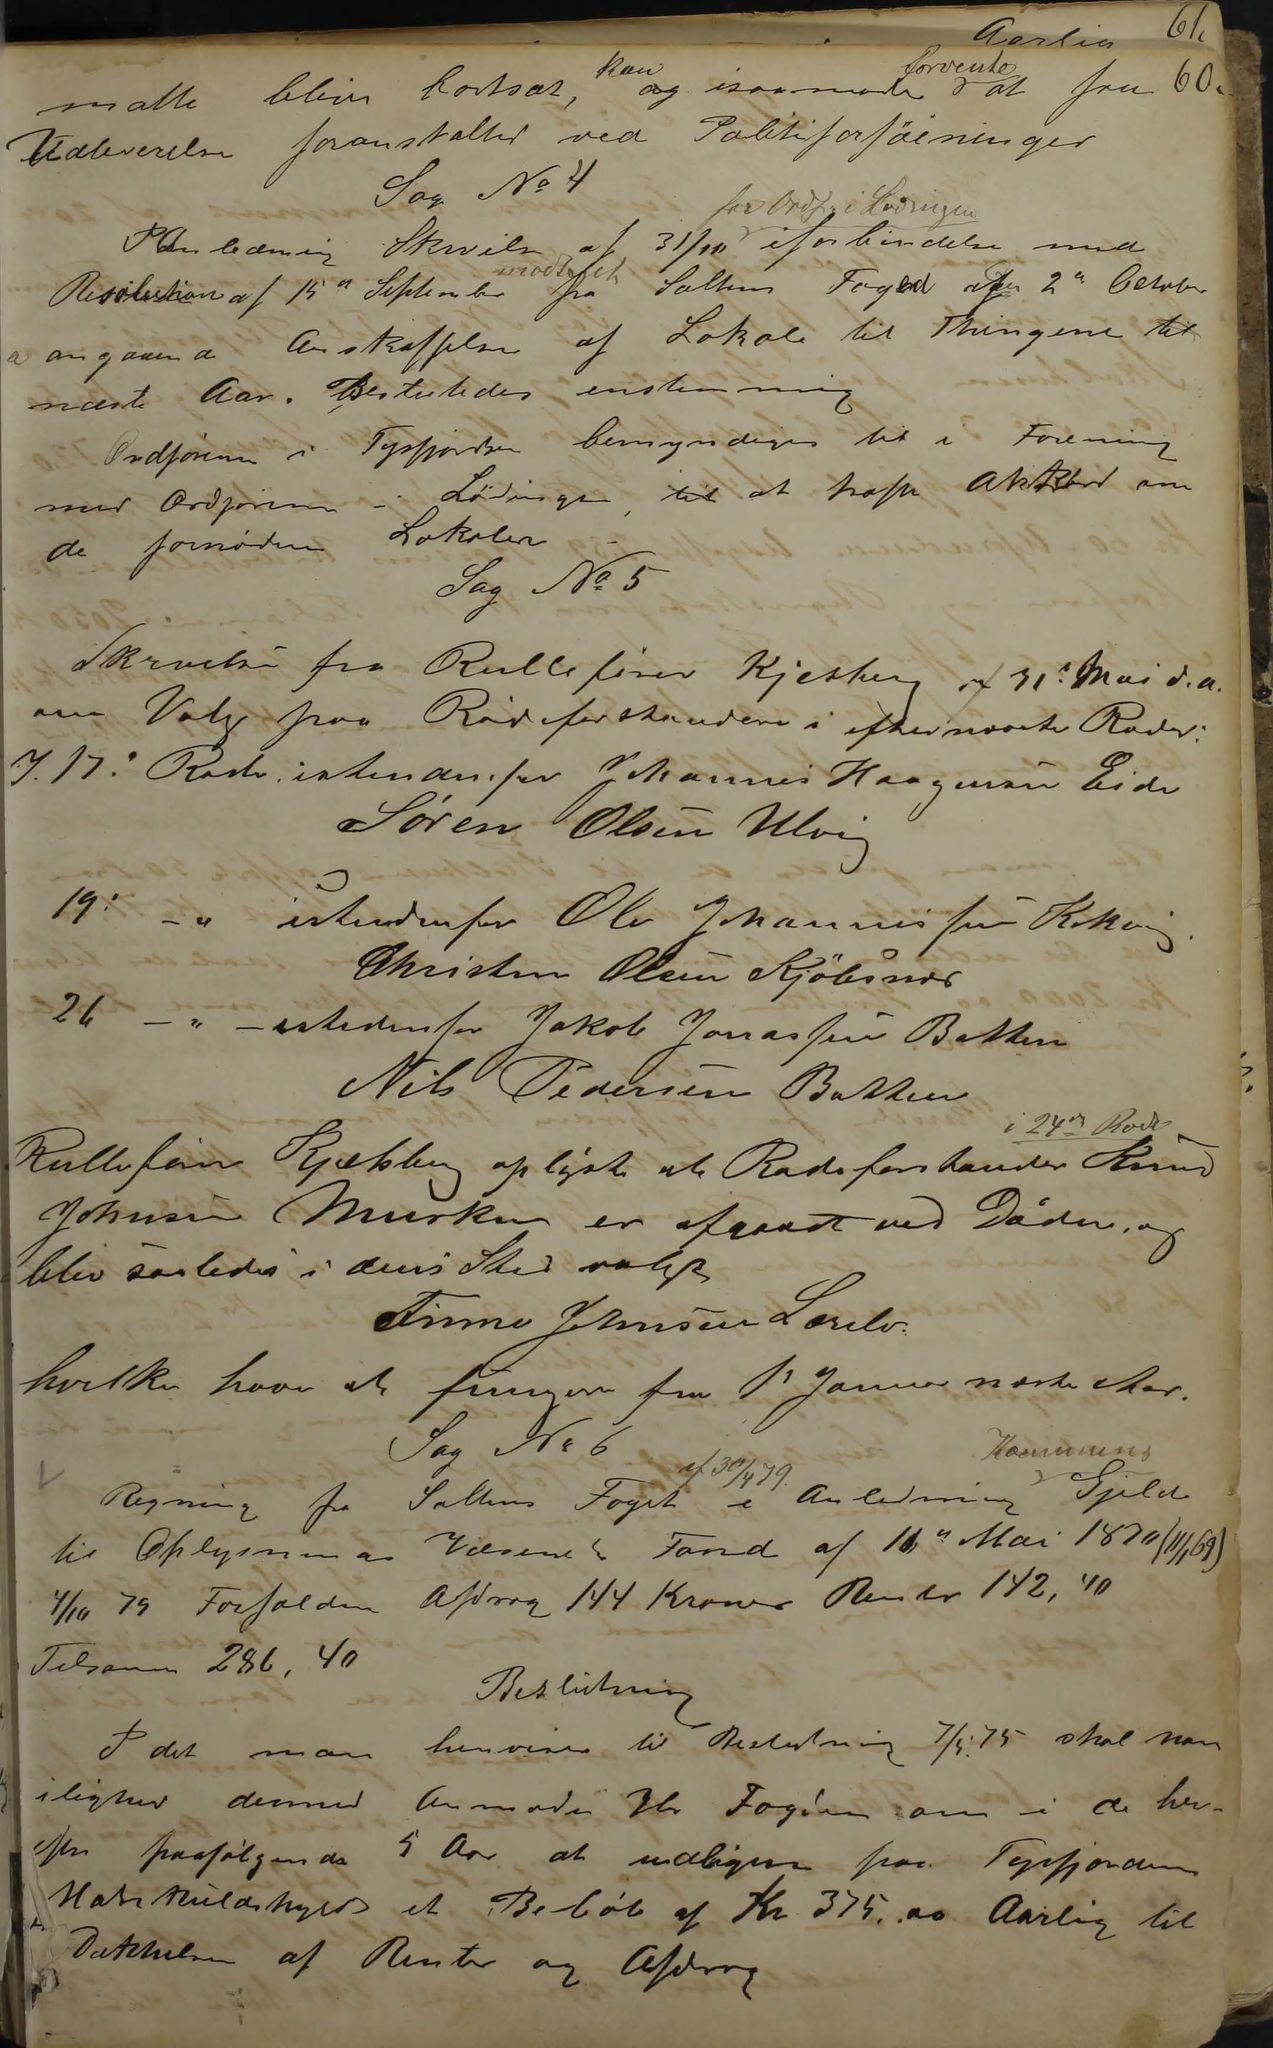 Aarlig 61.
maatte blive bortsat, kan og isaamaade forvente at faa 60.
Udleverelse foranstaltet ved Politiforføininger
Sag No 4
for Ordf. i Lødingen
I Anledning Skrivelse af 31/10 iforbindelse med
Resolution af 15de September modtaget fra Saltens Foged 2den October
angaaende Anskaffelse af Lokale til Thingene til
næste Aar. Besluttedes enstemmig
Ordføreren i Tysfjorden bemyndiges til i Forening
med Ordføreren i Lødingen, til at træffe Akkord om
de fornødne Lokaler
Sag No 5
Skrivelse fra Rullefører Kjelsberg af 31te Mai d.a.
om Valg paa Rodeforstandere i efternævnte Roder:
I. 17: Rode istedenfor Johannes Haagensen Eide
Søren Olsen Ulvig
19: -"- istedenfor Ole Johannessen Kokvig.
Christen Olsen Kjöbsnæs
26 -"- istedenfor Jakob Jonassen Bakken
Nils Pedersen Bakken
i 24de Rode
Rullefører Kjelsberg oplyste at Rodeforstander Knud
Johnsen Musken er afgaaet ved Döden, og
blev saaledes i dens Sted valgt
Finne Johnsen
hvilke have at fungere fra 1ste Januar næste Aar.
Sag No 6
Regning fra Saltens Foget af 30/4 79. i Anledning Kommunens Gjeld
til Oplysnings Væsenets Fond af 11te Mai 1870 (11/1 69)
4/10 79 Forfalden Afdrag 144 Kroner Renter 142,40
Tilsammen 286,40
Beslutning
I det man henviser til Beslutning 7/5.75 skal man
ilighed dermed Anmode Hr Fogden om i de her-
efter paafølgende 5 Aar at udligne paa Tysfjordens
Matrikulskyld et Beløb af Kr 375.00 Aarlig til
Dækkelse af Renter og Afdrag